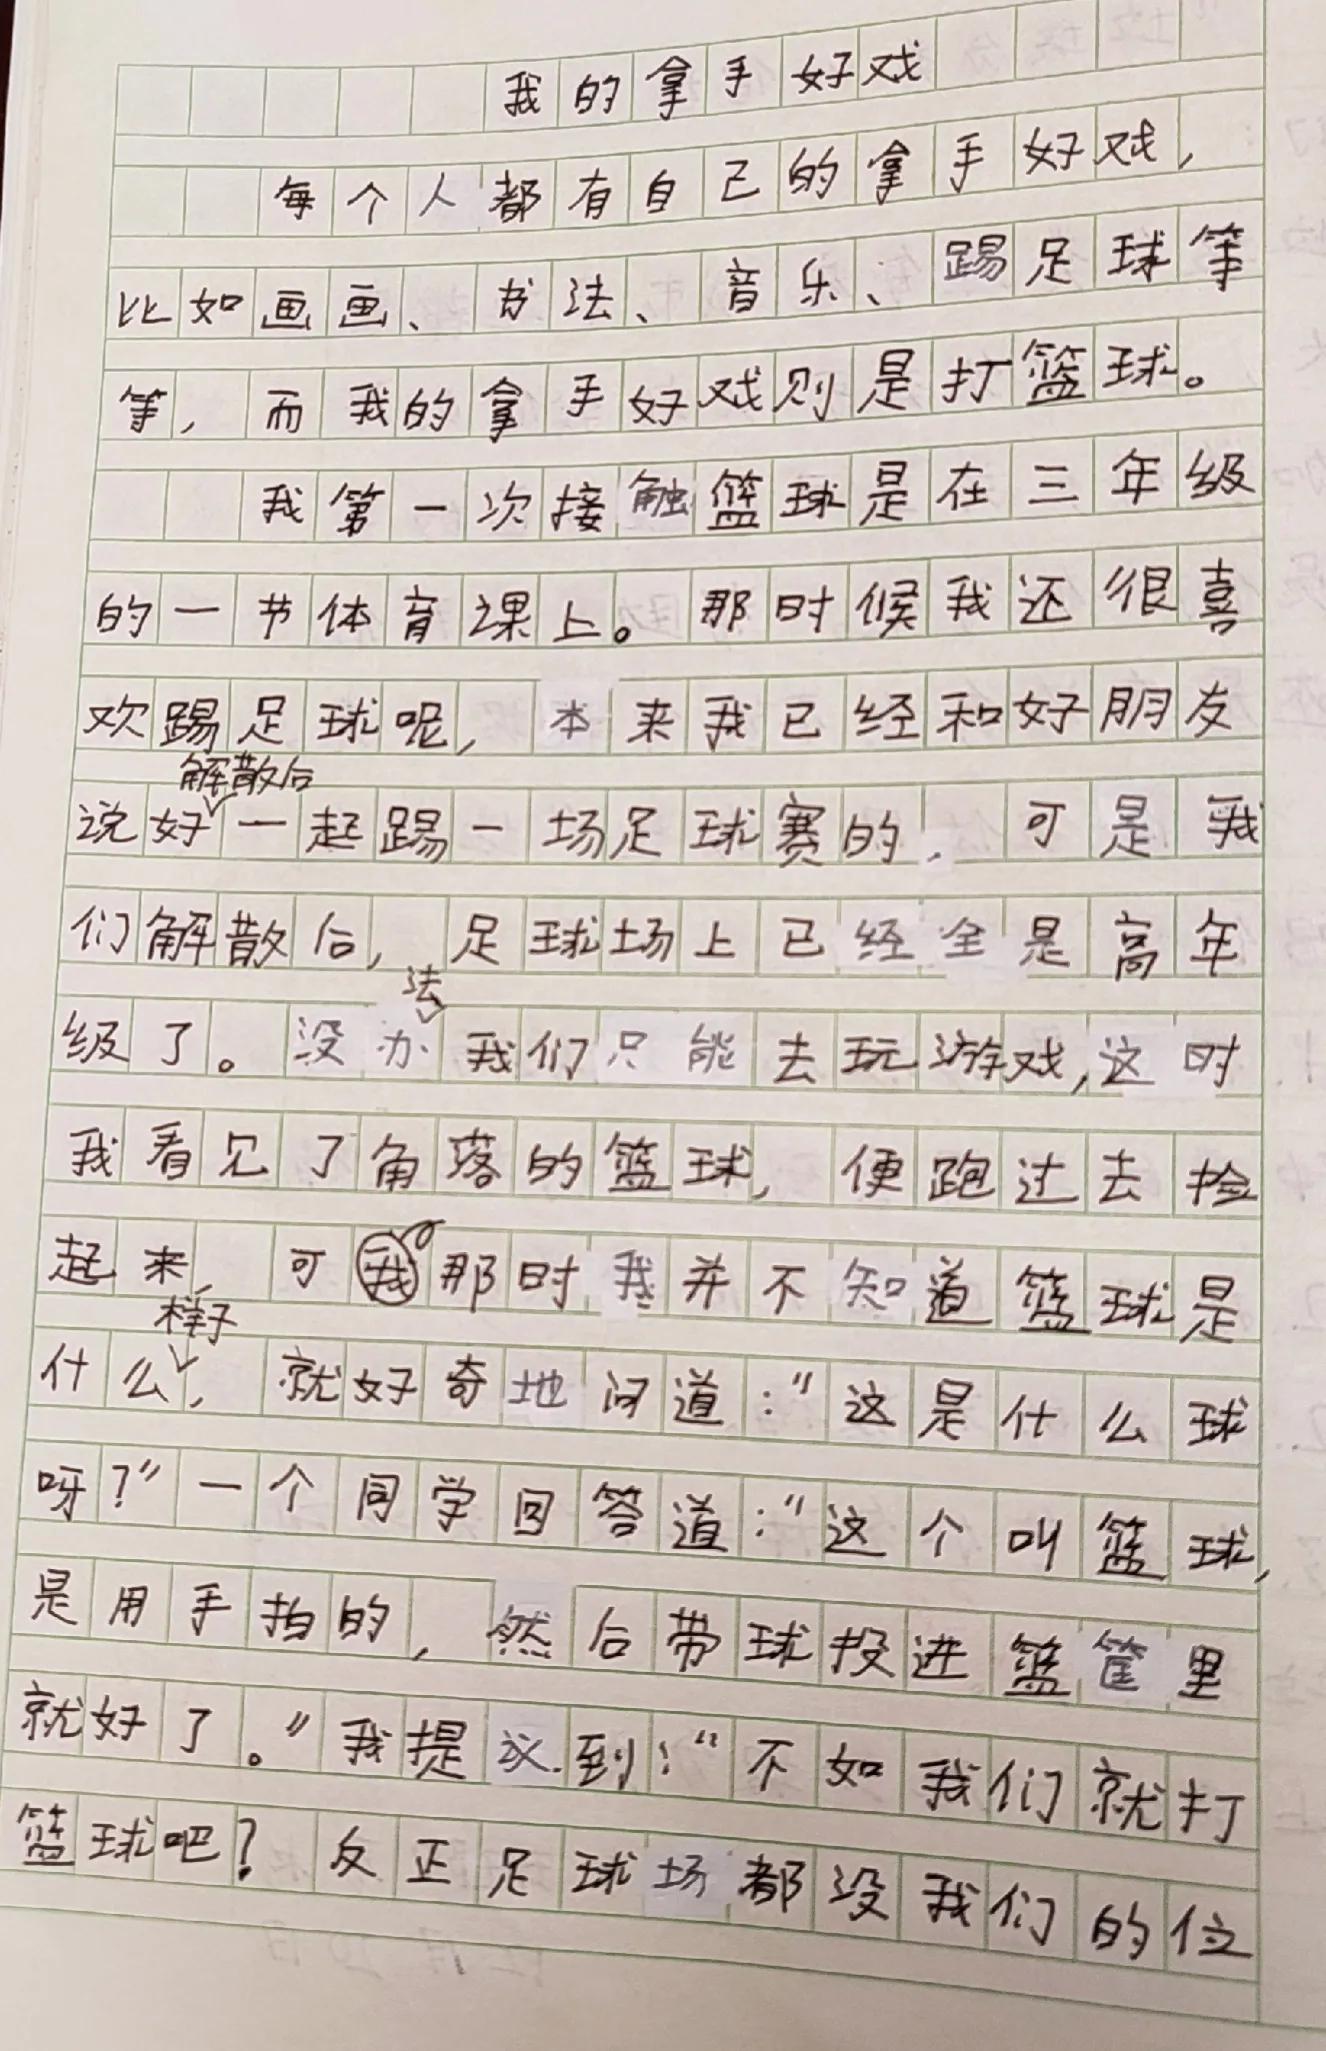 我的拿手好戏
每个人都有自己的拿手好戏，
比如画画、书法、音乐、踢足球等
等，而我的拿手好戏则是打篮球。
我第一次接触篮球是在三年级
的一节体育课上。那时候我还很喜
欢踢足球呢，本来我已经和好朋友
解散后
说好一起踢一场足球赛的，可是我
们解散后，足球场上已经全是高年
法
级了。没办我们只能去玩游戏，这时
我看见了角落的篮球，便跑过去捡
起来，可我那时我并不知道篮球是
样子
什么，就好奇地问道：“这是什么球
呀？”一个同学回答道：“这个叫篮球，
是用手拍的，然后带球投进篮筐里
就好了。”我提议到：“不如我们就打
篮球吧？反正足球场都没我们的位